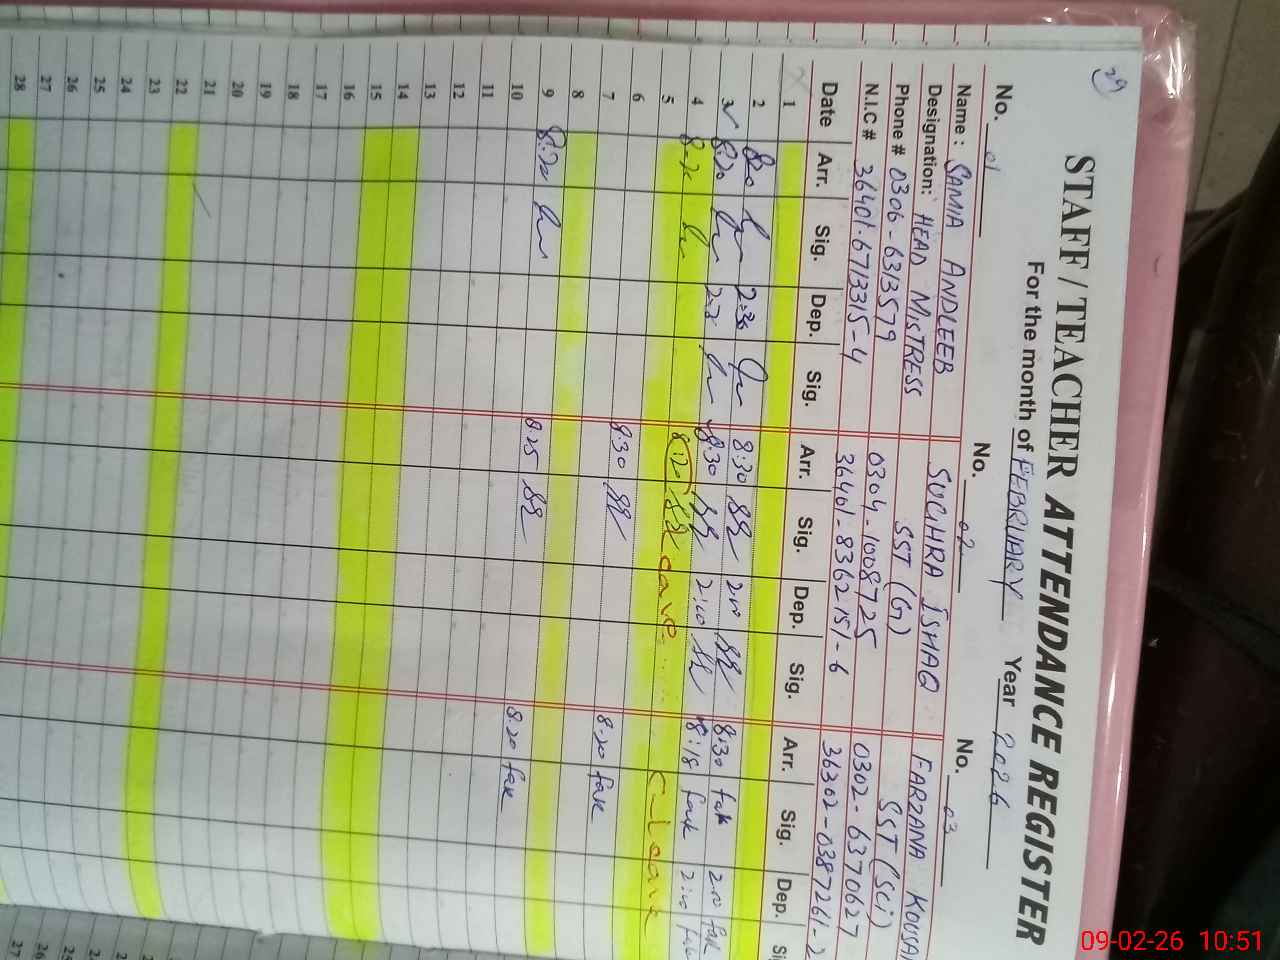 29
STAFF / TEACHER ATTENDANCE REGISTER
For the month of FEBRUARY Year 2026
No. 01 No. 02 No. 03
Name : SAMIA ANDLEEB SUGHRA ISHAQ FARZANA KOUSAR
Designation: HEAD MISTRESS SST (G) SST (Sci)
Phone # 0306-6313579 0304-1008725 0302-6370627
N.I.C # 36401-6713315-4 36401-8362151-6 36302-0387261-2
Date Arr. Sig. Dep. Sig. Arr. Sig. Dep. Sig. Arr. Sig. Dep. Si
1
2 2:30 8:30 2:00 8:30 2:00
3 8:20 8:30 2:00 8:18 2:00
4 8:20 8:20 leave C-leave
5
6 8:30 8:20
7
8
9 8:20 8:25 8:20
10
11
12
13
14
15
16
17
18
19
20
21
22
23
24
25
26
27
28
26
27
09-02-26 10:51